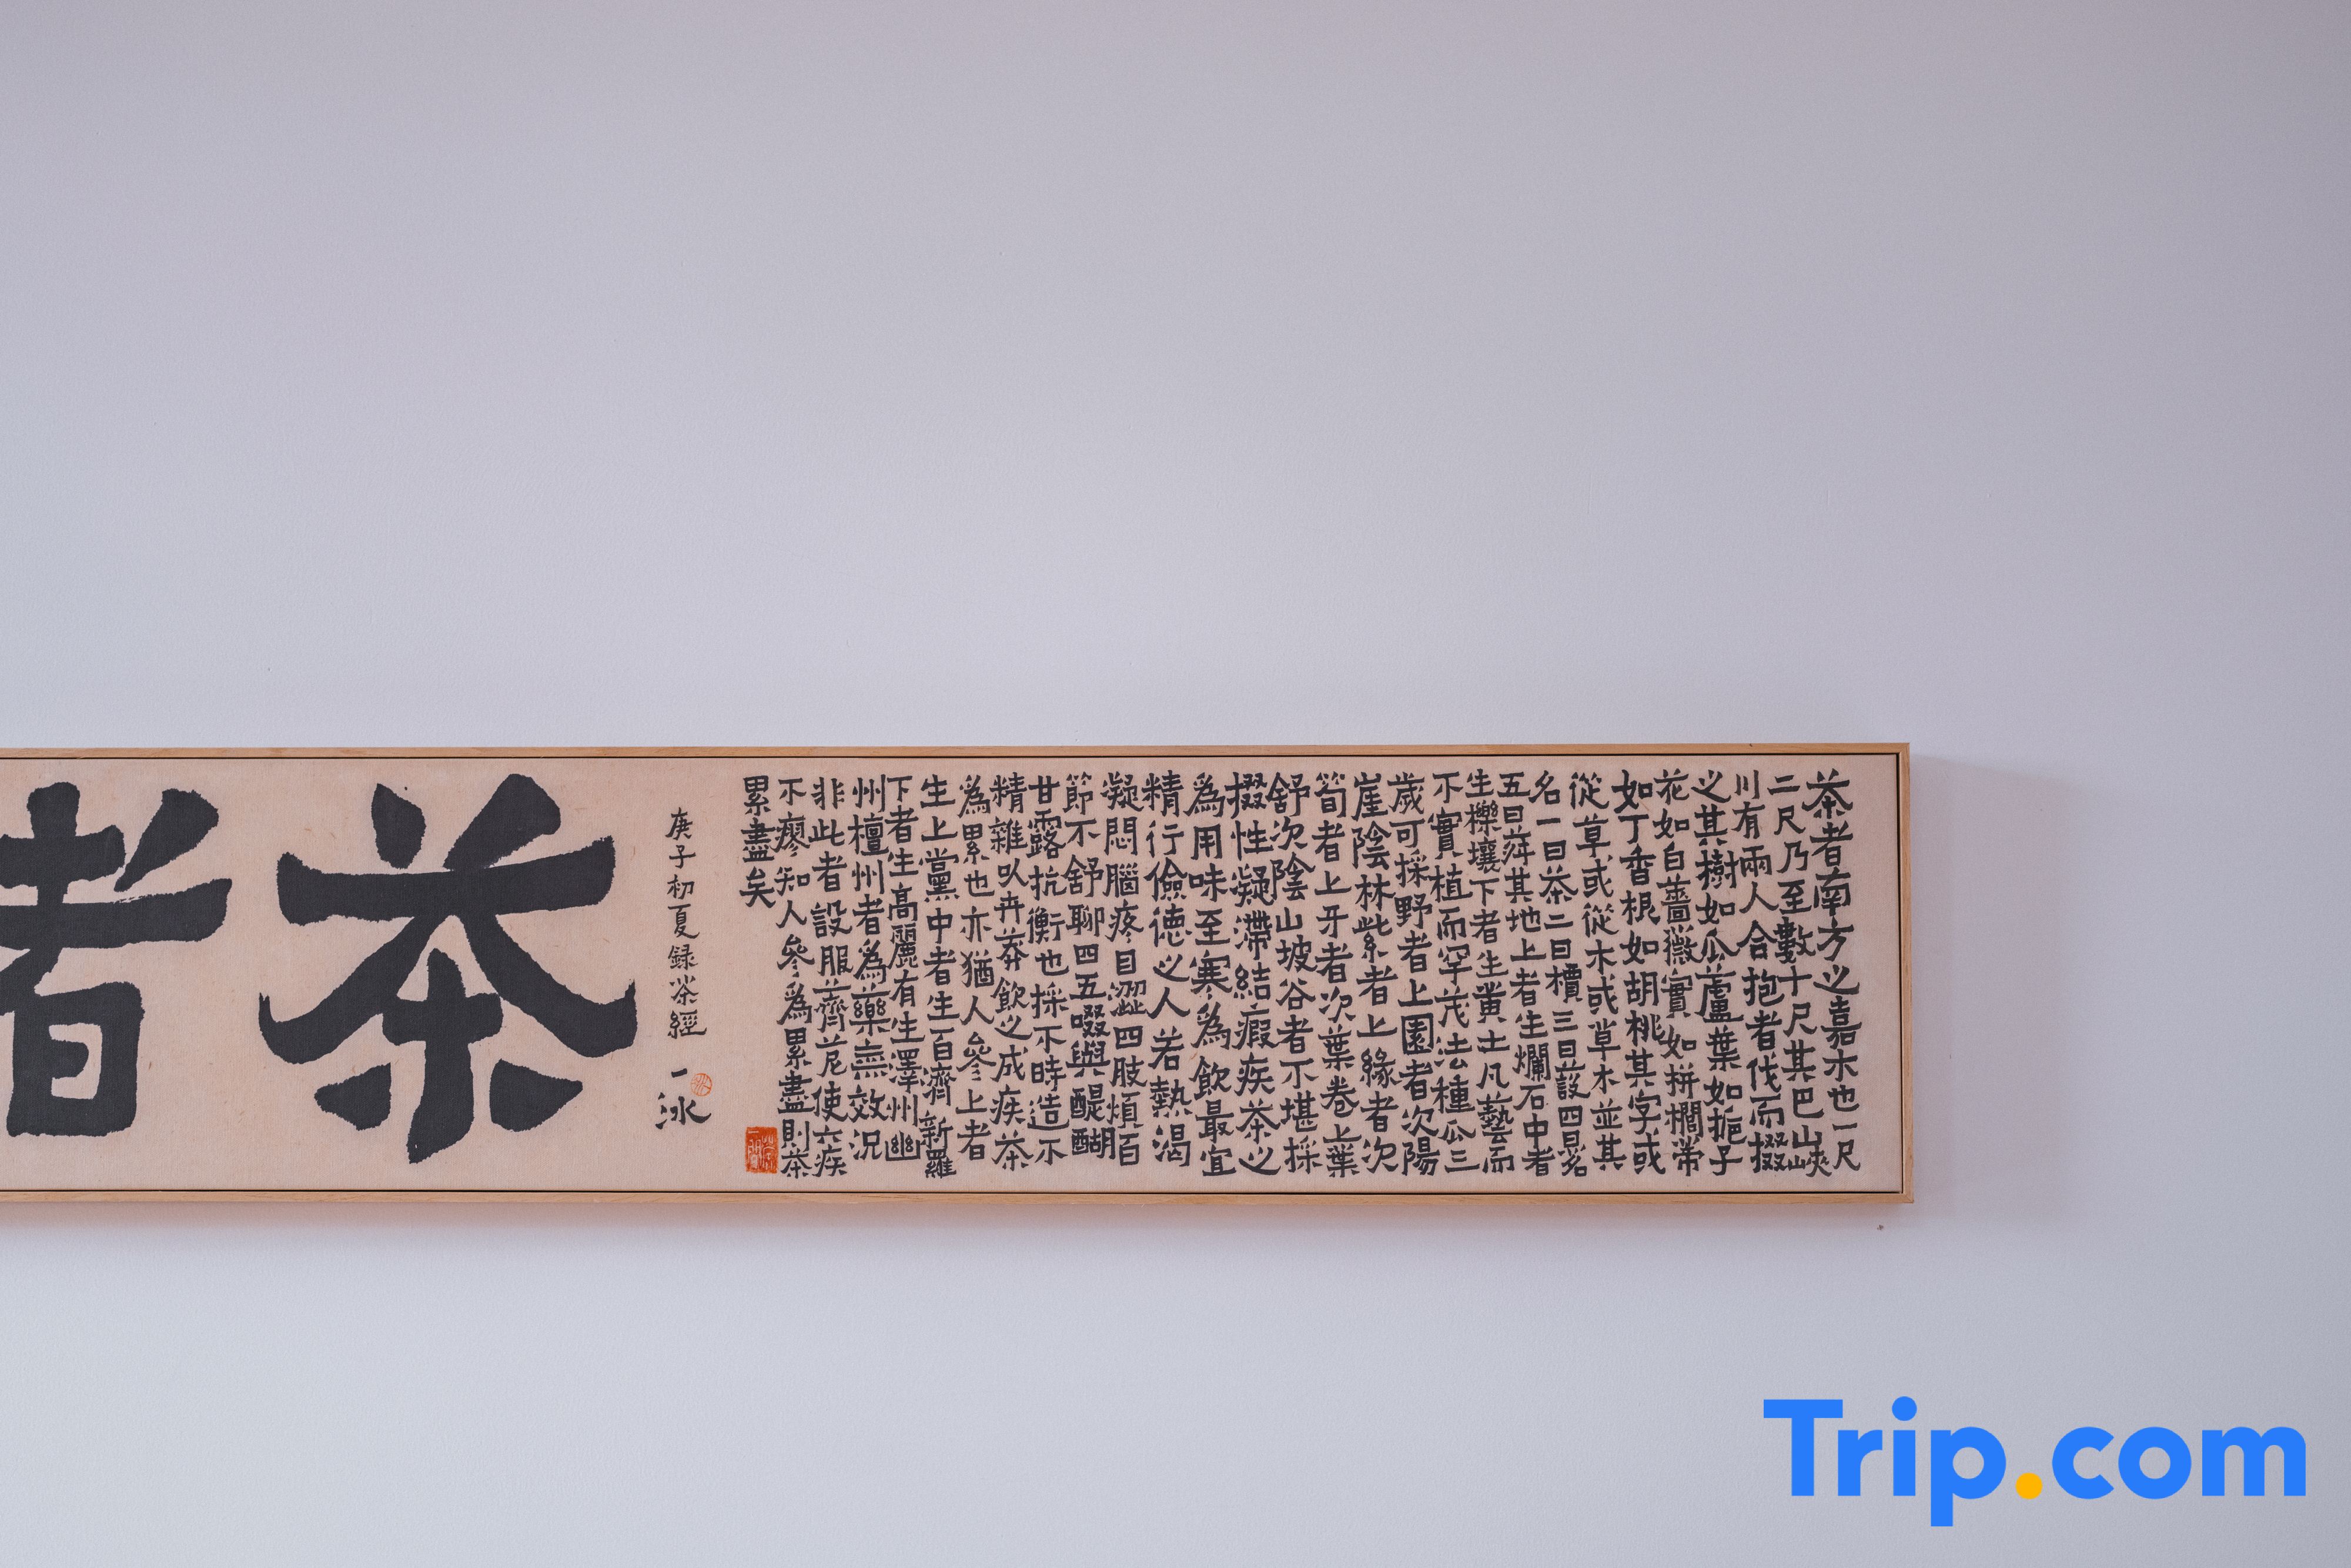 茶者南方之嘉木也一尺
二尺乃至數十尺其巴山峽
川有兩人合抱者伐而掇
之其樹如瓜蘆葉如梔子
花如白薔薇實如栟櫚蒂
如丁香根如胡桃其字或
從草或從木或草木並其
名一曰茶二曰檟三曰蔎四曰茗
五曰荈其地上者生爛石中者
生櫟壤下者生黃土凡藝而
不實植而罕茂法種瓜三
歲可採野者上園者次陽
崖陰林紫者上緣者次
筍者上牙者次葉卷上葉
舒次陰山坡谷者不堪採
掇性凝滯結瘕疾茶之
爲用味至寒爲飲最宜
精行儉德之人若熱渴
凝悶腦疼目澀四肢煩百
節不舒聊四五啜與醍醐
甘露抗衡也採不時造不
精雜以卉莽飲之成疾茶
爲累也亦猶人參上者
生上黨中者生百濟新羅
下者生高麗有生澤州幽
州檀州者爲藥無效況
非此者設服薺苨使六疾
不瘳知人參爲累盡則茶
累盡矣
庚子初夏録茶經
一泳
茶者
Trip.com